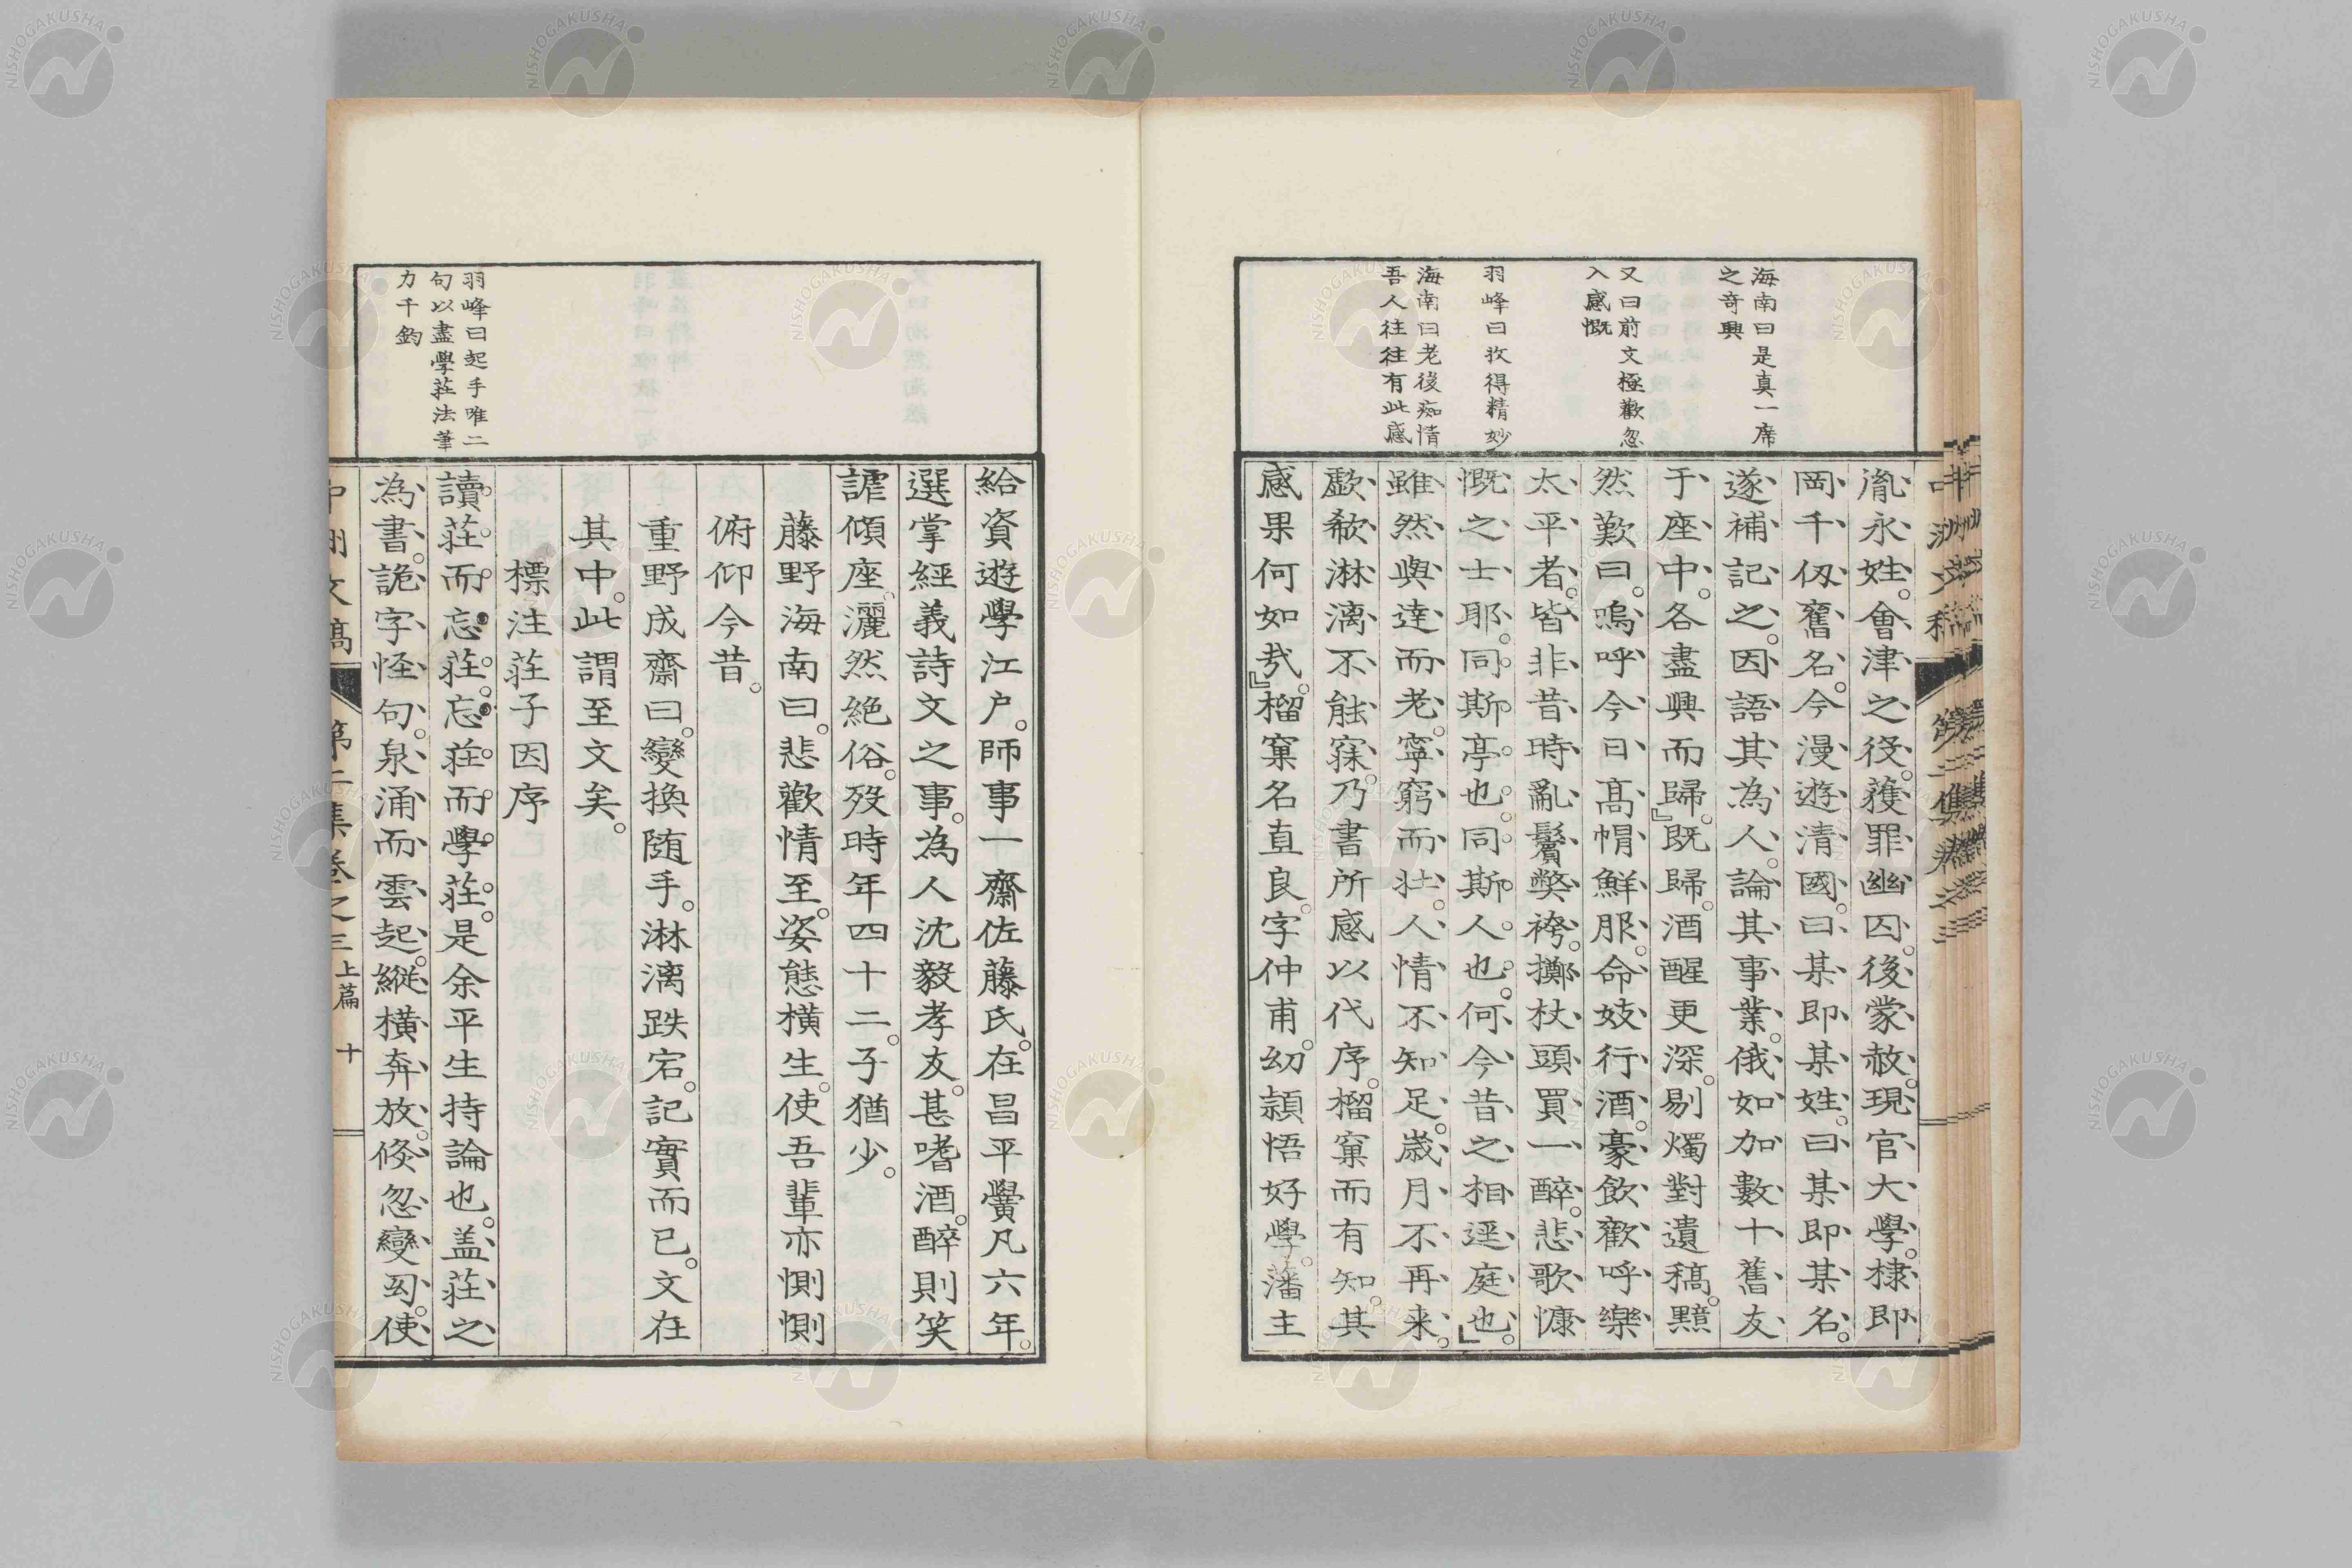 海南曰是真一席
之奇興
又曰前文極歡忽
入感慨
羽峰曰收得精妙
海南曰老後痴情
吾人往往有此感
胤永姓。會津之役。蒦罪幽囚。後蒙赦。現官大學。棣即
岡千仭舊名。今漫遊清國。曰某即某姓。曰某即某名。
遂補記之。因語其為人。論其事業。俄如加數十舊友
于座中。各盡興而歸。』既歸。酒醒更深。剔燭對遺稿。黯
然歎曰。嗚呼今日高帽鮮服。命妓行酒。豪飲歡呼樂
太平者。皆非昔時亂鬢獘袴。擲杖頭買一醉。悲歌慷
慨之士耶。同斯亭也。同斯人也。何今昔之相逕庭也。』
雖然與達而老。寧窮而壯。人情不知足。歲月不再来。
歔欷淋漓不能寐。乃書所感以代序。榴窠而有知。其
感果何如哉。』榴窠名直良。字仲甫。幼頴悟好學。藩主
給資遊學江户。師事一齋佐藤氏。在昌平黌凡六年。
選掌經義詩文之事。為人沈毅孝友。甚嗜酒。醉則笑
謔傾座。灑然絶俗。歿時年四十二。子猶少。
藤野海南曰。悲歡情至。姿態横生。使吾輩亦惻惻
俯仰今昔。
重野成齋曰。變換随手。淋漓跌宕。記實而已。文在
其中。此謂至文矣。
標注莊子因序
讀莊。而忘莊。忘莊。而學莊。是余平生持論也。盖莊之
為書。詭字怪句。泉涌而雲起。縱横奔放。倐忽變幻。使
羽峰曰起手唯二
句以盡學莊法筆
力千鈞
中洲文稿 第二集卷之三 上篇 十
NISHOGAKUSHA